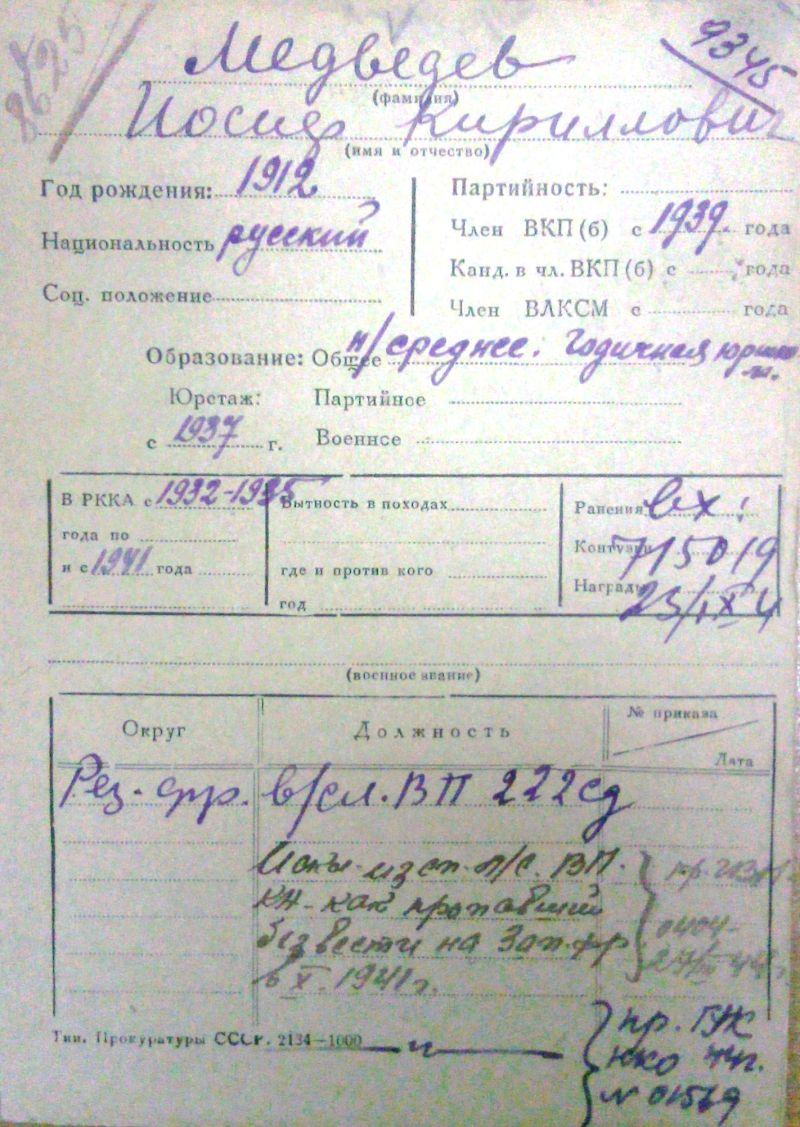 8625
9345
Медведев
(фамилия)
Иосиф Кириллович
(имя и отчество)
Год рождения: 1912
Национальность русский
Соц. положение
Партийность:
Член ВКП(б) с 1939. года
Канд. в чл. ВКП(б) с года
Член ВЛКСМ с года
Образование: Общее н/среднее. Годичная
Юрстаж: Партийное
с 1937 г. Военное
В РККА с 1932-1935
года по
и с 1941 года
Бытность в походах
где и против кого
год
Ранения вх:
Контузии 715019
Награды
(военное звание)
Округ Должность № приказа
Дата
Рез. фр. в/сл. ВП 222сд
Искл. из сп. л/с. ВП.
КА как пропавший
без вести на Зап. фр
в X. 1941г.
0404
Тип. Прокуратуры СССР. 2134—1000
пр. ГУК
НКО 44г.
N 01569